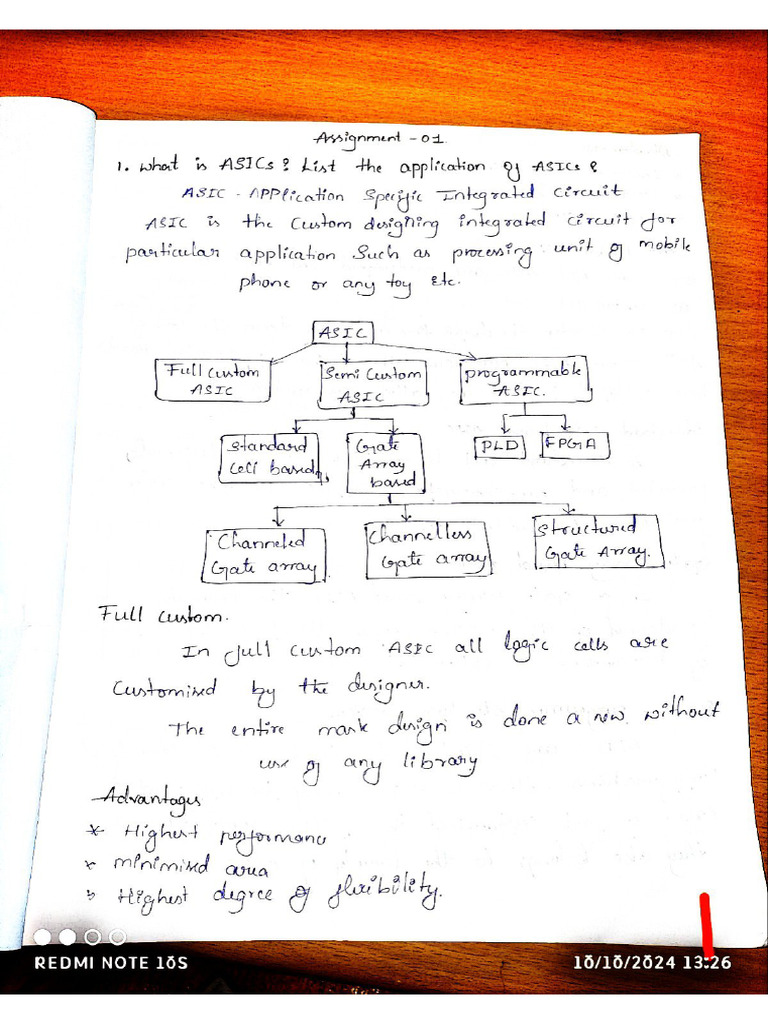 Assignment - 01
1. What is ASICs? List the application of ASICs?
ASIC - APPlication Specific Integrated Circuit
ASIC is the Custom designing integrated circuit for
particular application Such as processing unit of mobile
phone or any toy Etc.
ASIC
Full custom
ASIC
Semi Custom
ASIC
programmable
ASIC.
Standard
Cell based
Gate
Array
based
PLD
FPGA
Channeled
Gate array
Channelless
Gate array
Structured
Gate Array.
Full custom.
In full custom ASIC all logic cells are
Customised by the designer.
The entire mask design is done a new without
use of any library
Advantages
* Highest performance
* minimised area
* Highest degree of flexibility.
REDMI NOTE 10S
10/10/2024 13:26